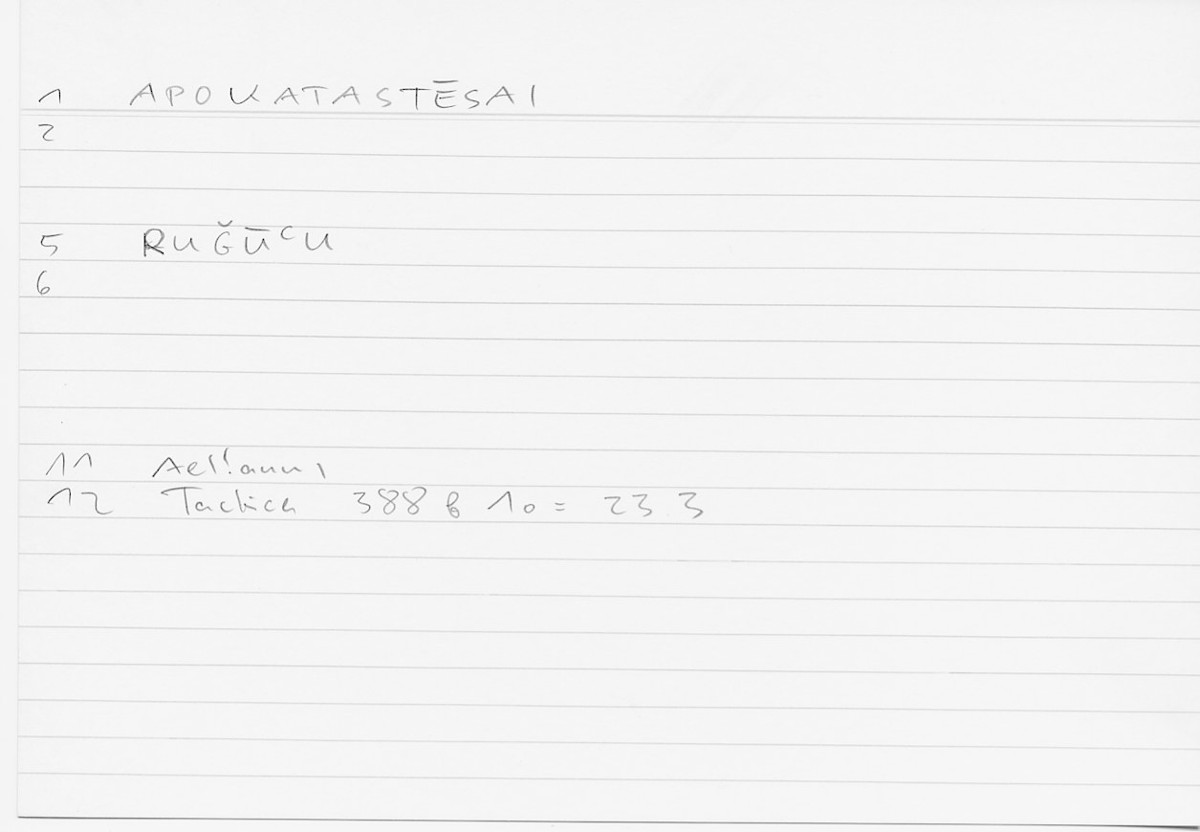 1 APOKATASTĒSAI
2
5 RUĞŪʿU
6
11 Aeliani
12 Tactica 388 b 10 = 23.3